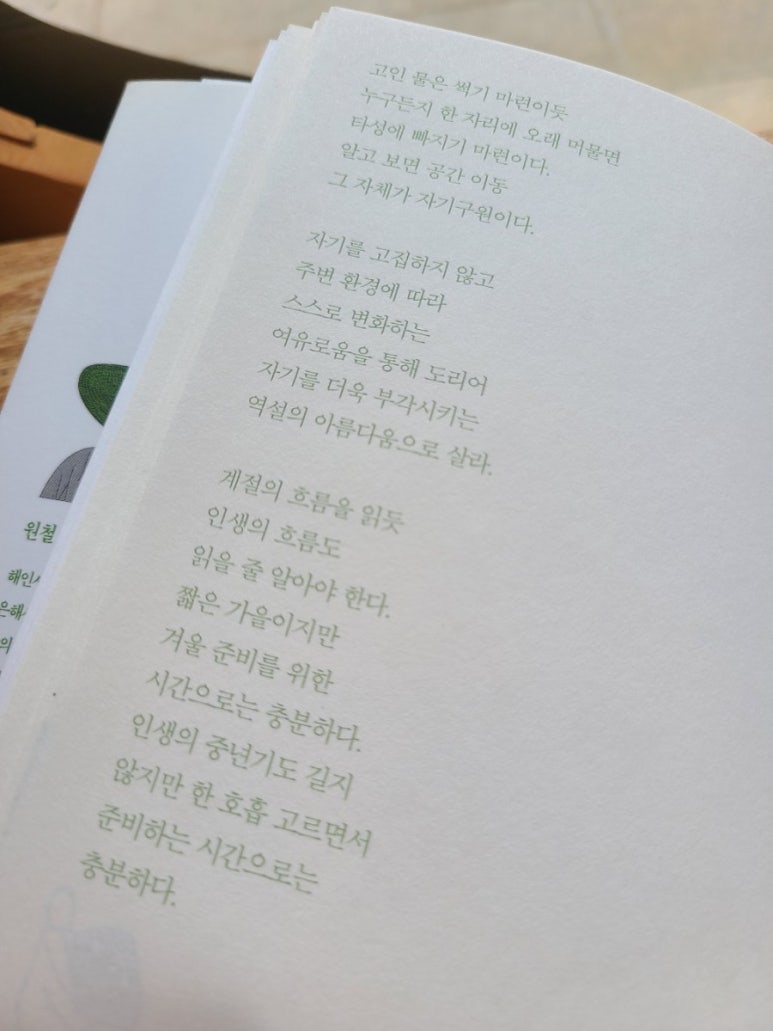 고인 물은 썩기 마련이듯
누구든지 한 자리에 오래 머물면
타성에 빠지기 마련이다.
알고 보면 공간 이동
그 자체가 자기구원이다.
자기를 고집하지 않고
주변 환경에 따라
스스로 변화하는
여유로움을 통해 도리어
자기를 더욱 부각시키는
역설의 아름다움으로 살라.
계절의 흐름을 읽듯
인생의 흐름도
읽을 줄 알아야 한다.
짧은 가을이지만
겨울 준비를 위한
시간으로는 충분하다.
인생의 중년기도 길지
않지만 한 호흡 고르면서
준비하는 시간으로는
충분하다.
원철
해인
은해
의